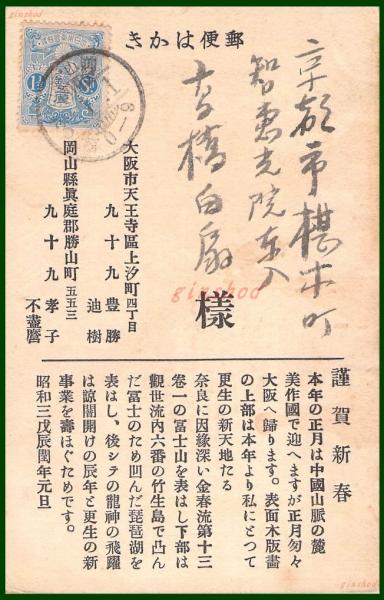 郵便はかき
京都市椹木町
智惠光院東入
高橋白扇
樣
大阪市天王寺區上汐町四丁目
九十九豊勝
迪樹
岡山縣眞庭郡勝山町五五三
九十九孝子
不盡麿
謹賀新春
本年の正月は中國山脈の麓
美作國で迎へますが正月匆々
大阪へ歸ります。表面木版畵
の上部は本年より私にとつて
更生の新天地たる
奈良に因緣深い金春流第十三
卷一の富士山を表はし下部は
觀世流内六番の竹生島で凸ん
だ富士のため凹んだ琵琶湖を
表はし、後シテの龍神の飛躍
は諒闇開けの辰年と更生の新
事業を壽ほぐためです。
昭和三戊辰閏年元旦
ginshod
ginshod
ginshod